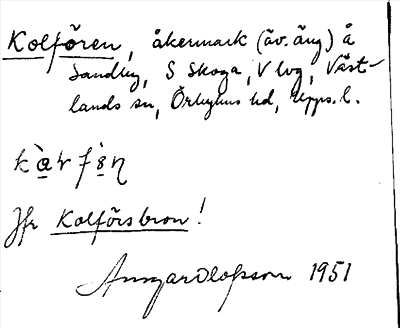 Kolfören, åkermark (äv. äng) å
Sandby, S Skoga, V lvg, Väst-
lands sn, Örbyhus hd, Upps. l.
Jfr Kolförsbron!
Ansgar Olofsson 1951